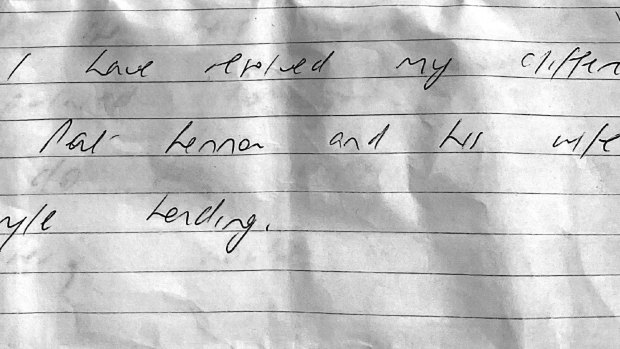 I have resolved my differen
Paul Lennon and his wife
Lending.